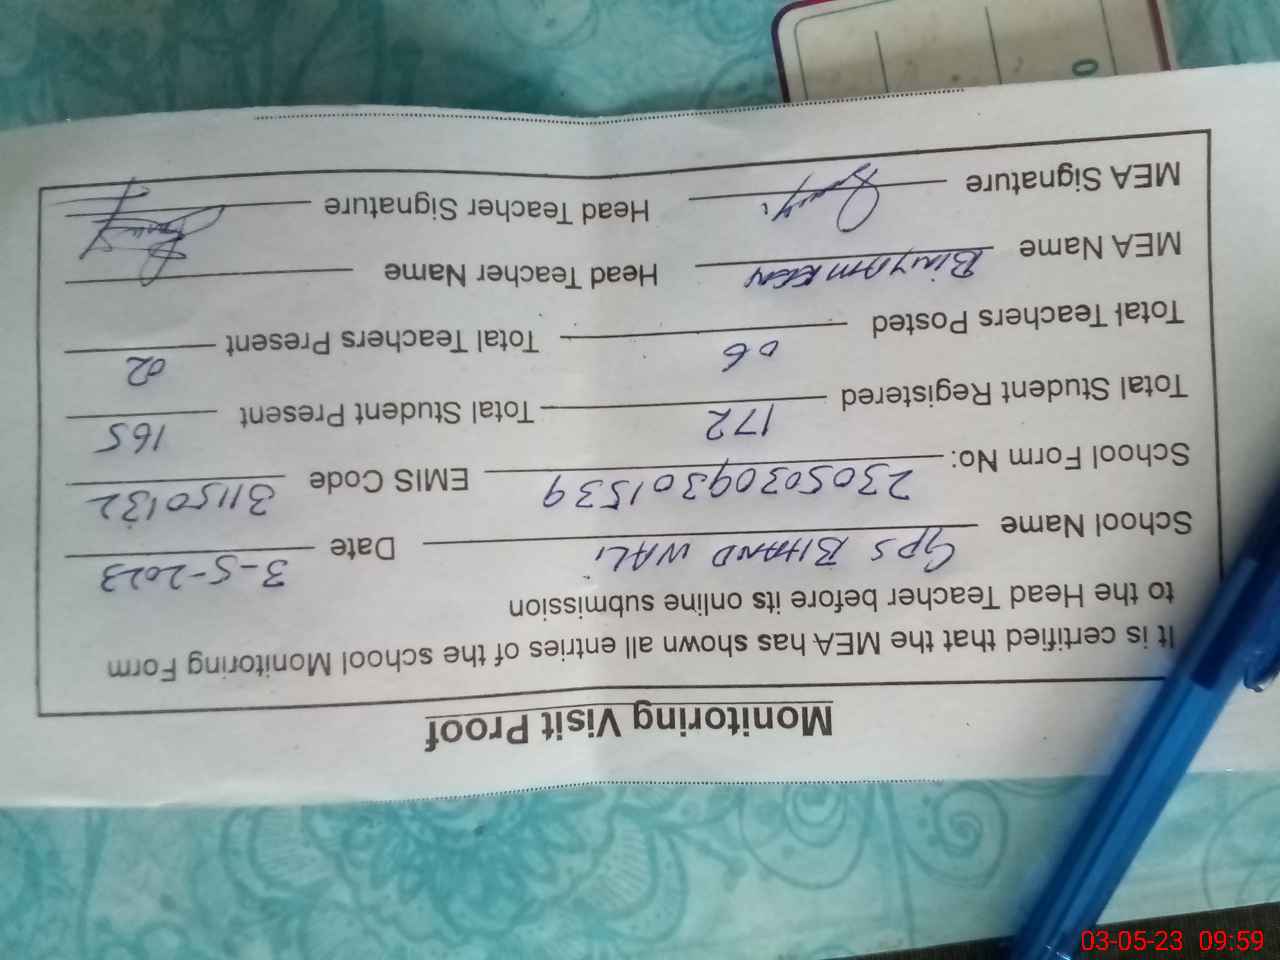 Monitoring Visit Proof
It is certified that the MEA has shown all entries of the school Monitoring Form
to the Head Teacher before its online submission
School Name GPS BHAND WALI Date 3-5-2023
School Form No: 23050309301539 EMIS Code 31150132
Total Student Registered 172 Total Student Present 165
Total Teachers Posted 06 Total Teachers Present 02
MEA Name Head Teacher Name
MEA Signature Head Teacher Signature
03-05-23 09:59